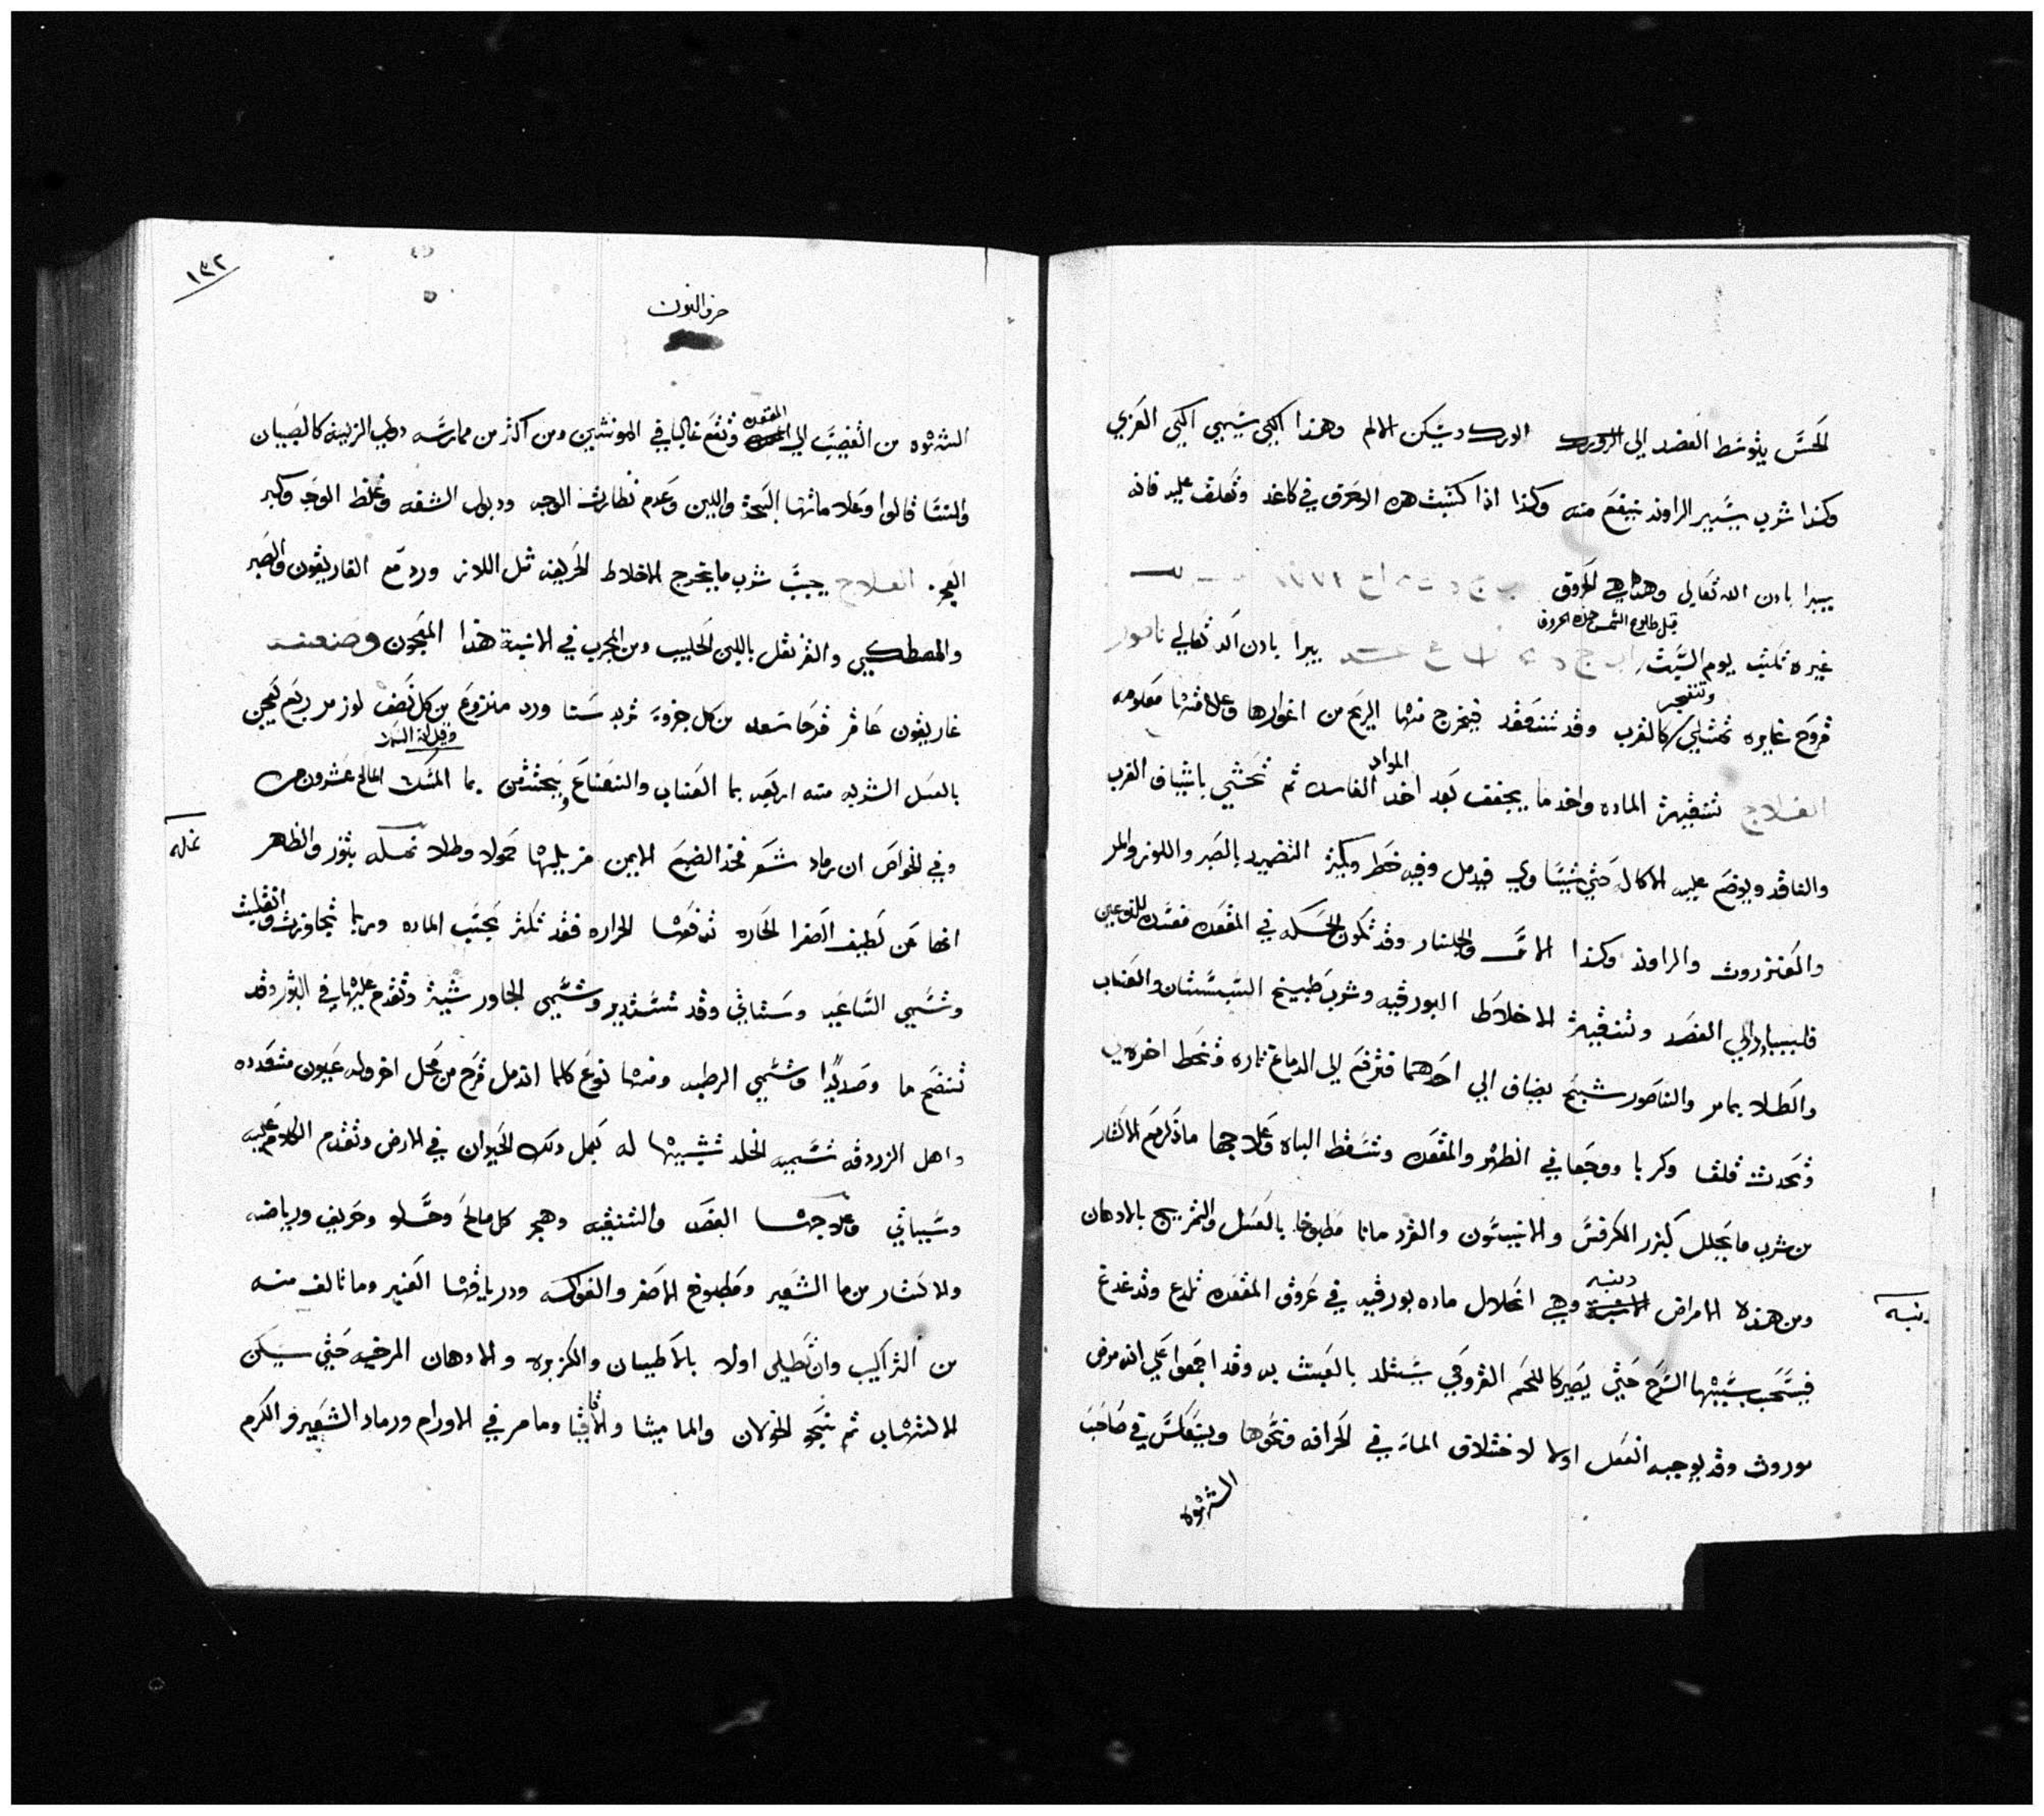 الحس يتوسط الفصد الي الورك ويسكن الالم وهذا الكي يسمي الكي العربي
وكذا شرب يسير الراوند ينفع منه وكذا اذا كتبت هذه الاحرف في كاغد وتعلق عليه فانه
يبرا بادن الله تعالي وهذه هي الحروف
قبل طلوع الشمس هذه الحروف
غيره تكتب يوم السبت يبرا بادن الله تعالي ناصور
وتنفجر
قروح غايره تمتلي كالغرب وقد تنعقد فيخرج منها الريح من اغوارها وعلامتها معلومه
المواد
العلاج تنقية الماده واخد ما يجفف بعد اخد الفاسده ثم تحشي باشياف الغرب
والناقد ويوضع عليه الاكاله حتي يتساوي فيدمل وفيه خطر ويكثر التضميد بالصبر واللوز والمر
والعنزروت والراوند وكذا الاس والجلنار وقد تكون الحكه في المقعده مفسده للنوعين
فليبادر الي الفصد وتنقية الاخلاط البورقيه وشرب طبيخ السبستان والعناب
والطلا بما مر والناصور شبيخ يضاف الي احدهما فترفع الي الدماغ تاره وتحط اخري
وتحدث قلقا وكربا ووجعا في الظهر والمقعده وتسقط الباه وعلاجها ما ذكر مع الاكثار
من شرب ما يحلل كبزر الكرفس والانيسون والقردمانا مطبوخا بالعسل والتمريخ بالادهان
ومن هذه الامراض دبنه وهي انحلال ماده بورقيه في عروق المقعده تلدع وتدغدغ
فيستحب بسببها الشرج حتي يصير كاللحم القروحي يستلد بالعبث به وقد اجمعوا علي انه مرض
موروث وقد يوجبه الفعل اولا لاختلاق الماء في الحرافه ونحوها وينعكس في صاحب
الشهوه
١٣٢
حرف النون
الشهوه من القضيب الي المقعده وتقع غالبا في المونثين ومن اكثر من ممارسه رطب الزبينه كالصبيان
والنسا قالوا وعلاماتها البحه واللين وعدم نظارة الوجه ودبول الشفه وغلظ الوجه وكبر
العجز. العلاج يجب شرب ما يخرج الاخلاط الحريفه مثل اللازورد مع الغاريقون والصبر
والمصطكي والقرنفل باللبن الحليب ومن المجرب في الابنية هذا المعجون وصنعته
غاريقون عاقر قرحا سعد من كل جزو تربد سنا ورد منزوع من كل نصف لوز مر ربع تعجن
بالعسل الشربه منه اربعه بما العناب والنعناع ويحتقن بما السمك المالح عشرون مره
وفي الخواص ان رماد شعر فخذ الضبع الايمن مزيلها حمولا وطلا نمله بثور والظاهر
نمله
انها عن لطيف الصفرا الحاره تدفعها الحراره فقد تكثر بحسب الماده وربما تجاوزت وانقلبت
وتسمي الساعيه وستاتي وقد تستدير وتسمي الجاورشية وتقدم عليها في البثور وقد
تنضح ما وصديدا وتسمي الرطبه ومنها نوع كلما اندمل قرح من محل اخر وله عيون متعدده
واهل الزردقه تسميه الخلد تشبيها له بعمل دلك الحيوان في الارض وتقدم الكلام عليه
وسياتي وعلاجها الفصد والتنقيه وهجر كل مالح وحلو وحريف ورياضه
والاكثار من ما الشعير ومطبوخ الاصفر والفواكه ودرياقها العنبر وما تالف منه
من التراكيب وان تطلي اولا بالاطيان والكزبره والادهان المرخيه حتي يسكن
الالتهاب ثم بنحو الخولان والماميثا والاقاقيا وما مر في الاورام ورماد الشعير والكرم